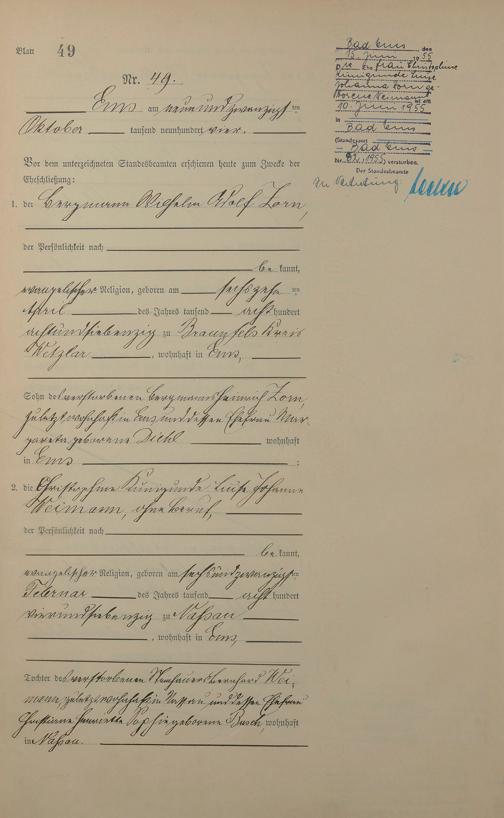 Blatt 49
Nr. 49.
Ems am neunundzwanzigsten
Oktober tausend neunhundert vier.
Vor dem unterzeichneten Standesbeamten erschienen heute zum Zwecke der
Eheschließung:
1. der Bergmann Wilhelm Adolf Zorn,
der Persönlichkeit nach
be kannt,
evangelischer Religion, geboren am sechszehnten
April des Jahres tausend acht hundert
achtundsiebenzig zu Braunfels Kreis
Wetzlar, wohnhaft in Ems,
Sohn des verstorbenen Bergmanns Heinrich Zorn,
zuletzt wohnhaft in Ems und dessen Ehefrau Mar-
gareta geborene Diehl wohnhaft
in Ems ;
2. die Christophine Kunigunde Luise Johanna
Weimann, ohne Beruf,
der Persönlichkeit nach
be kannt,
evangelischer Religion, geboren am sechsundzwanzigsten
Februar des Jahres tausend acht hundert
vierundsiebenzig zu Nassau
, wohnhaft in Ems,
Tochter des verstorbenen Steinhauers Bernhard Wei-
mann zuletzt wohnhaft in Nassau und dessen Ehefrau
Christiane Henriette Sophie geborene Busch, wohnhaft
in Nassau.
Bad Ems den
13. Juni 1955
Die Frau Christophine
Kunigunde Luise
Johanna Zorn ge-
borene Weimann
ist am
10. Juni 1955
in
Bad Ems
(Standesamt
Bad Ems
Nr. 1955) verstorben.
Der Standesbeamte
In Vertretung